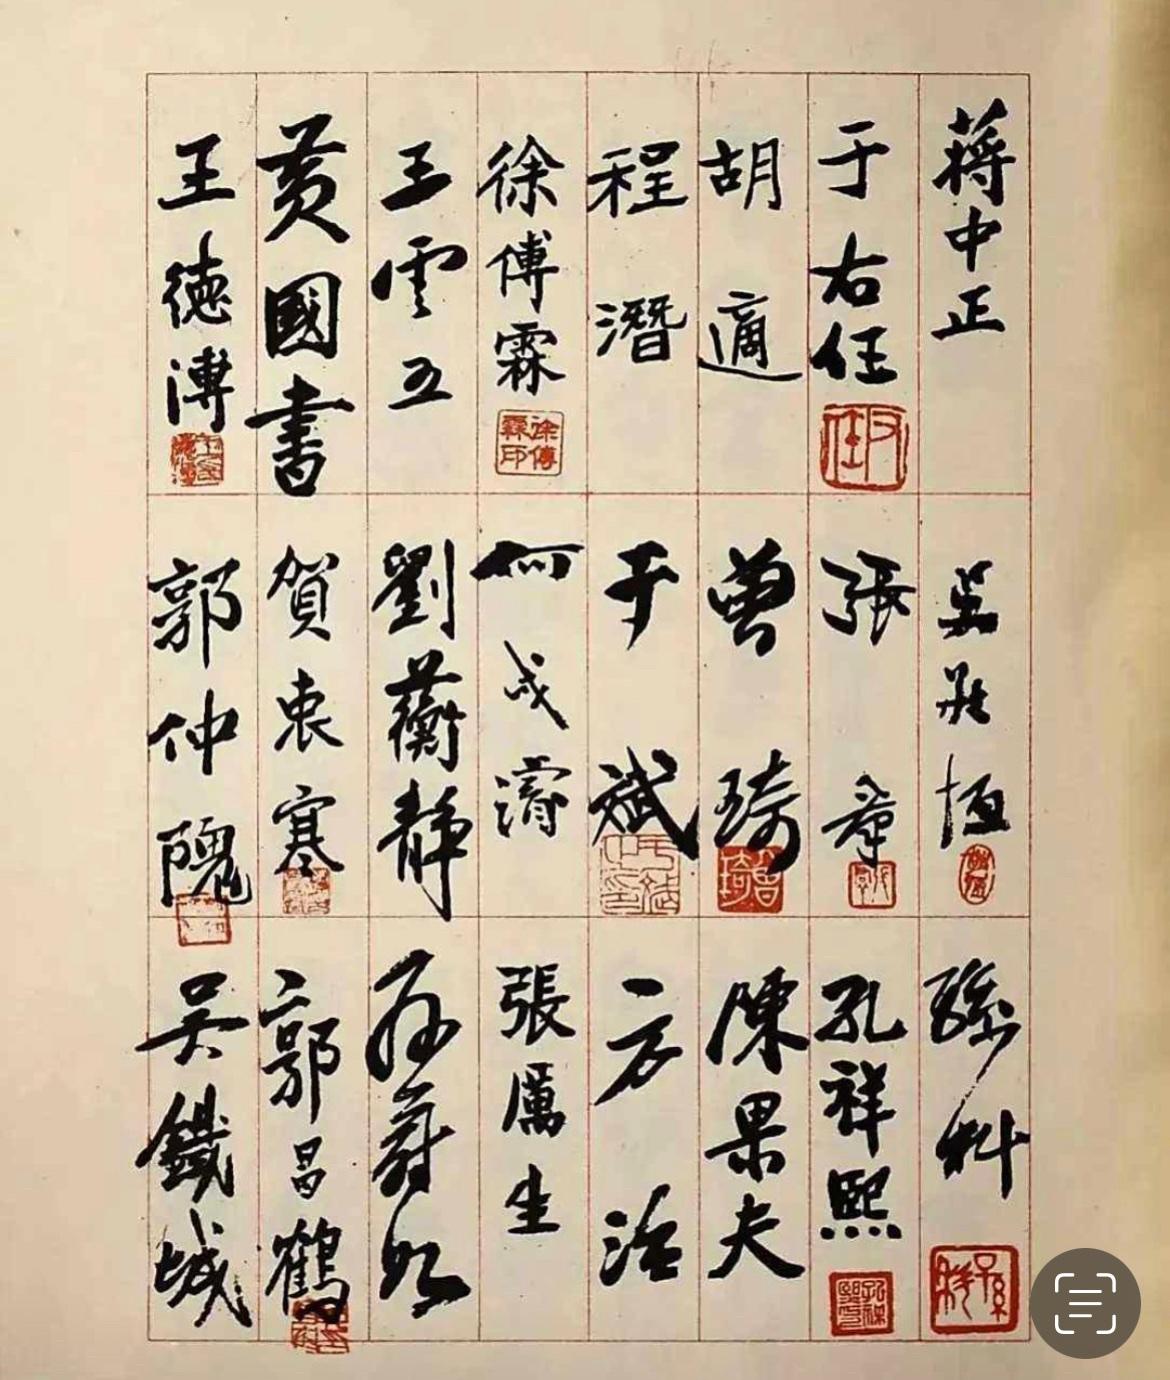 蔣中正
于右任
右任
胡適
程潛
徐傅霖
徐傅霖印
王雲五
黃國書
王德溥
吳敬恆
張羣
曾琦
曾琦
于斌
何成濬
劉蘅靜
賀衷寒
郭仲隗
孫科
孫科
孔祥熙
孔祥熙印
陳果夫
方治
張厲生
孫蔚如
郭昌鶴
吳鐵城